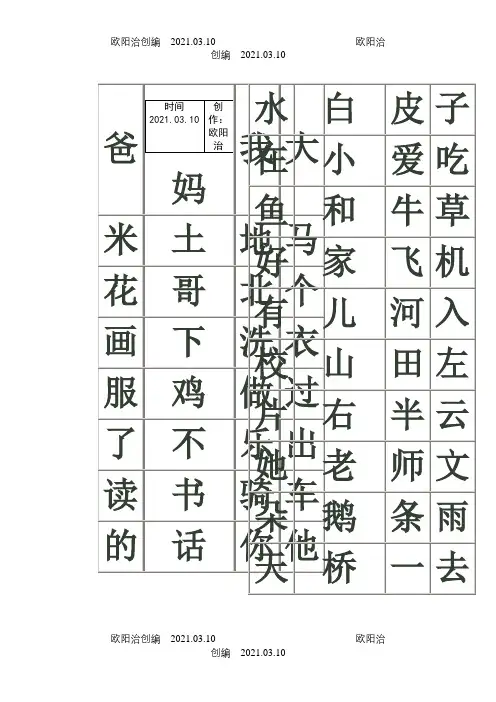 欧阳治创编 2021.03.10 欧阳治
创编 2021.03.10
时间 创
2021.03.10 作：
欧阳
治
爸 妈 我 大
米 土 地 马
花 哥 北 个
画 下 洗 衣
服 鸡 做 过
了 不 乐 出
读 书 骑 车
的 话 你 他
水 白 皮 子
在 小 爱 吃
鱼 和 牛 草
好 家 飞 机
有 儿 河 入
校 山 田 左
片 右 半 云
她 老 师 文
朵 鹅 条 雨
天 桥 一 去
欧阳治创编 2021.03.10 欧阳治
创编 2021.03.10